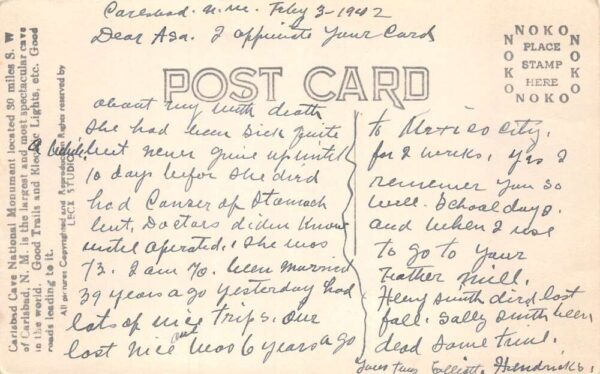 Carlsbad. n.m. Feby 3-1942
Dear Asa. I appriate Your Cards
POST CARD
NOKO
NOKO
PLACE
STAMP
HERE
NOKO
NOKO
about my with death
She had been Sick quite
a while but never give up until
10 days befor She died
had Canser of Stomach
but. Doctors diden Know
until operated. She was
73. I am 70. been married
39 years ago yesterday had
lots of nice Trips. Our
last nice out was 6 years ago
to Mexico City.
for 2 weeks, yes I
rememer you so
well. School days.
and when I use
to go to your
Father Mill.
Heny Smith died last
fall. Sally Smith been
dead Some time.
Yours Truy Elliott Hendricks.
Carlsbad Cave National Monument located 30 miles S. W
of Carlsbad, N. M. is the largest and most spectacular cave
in the world. Good Trails and Electric Lights, etc. Good
roads leading to it.
All pictures Copyrighted and Reproduction Rights reserved by
LECK STUDIO